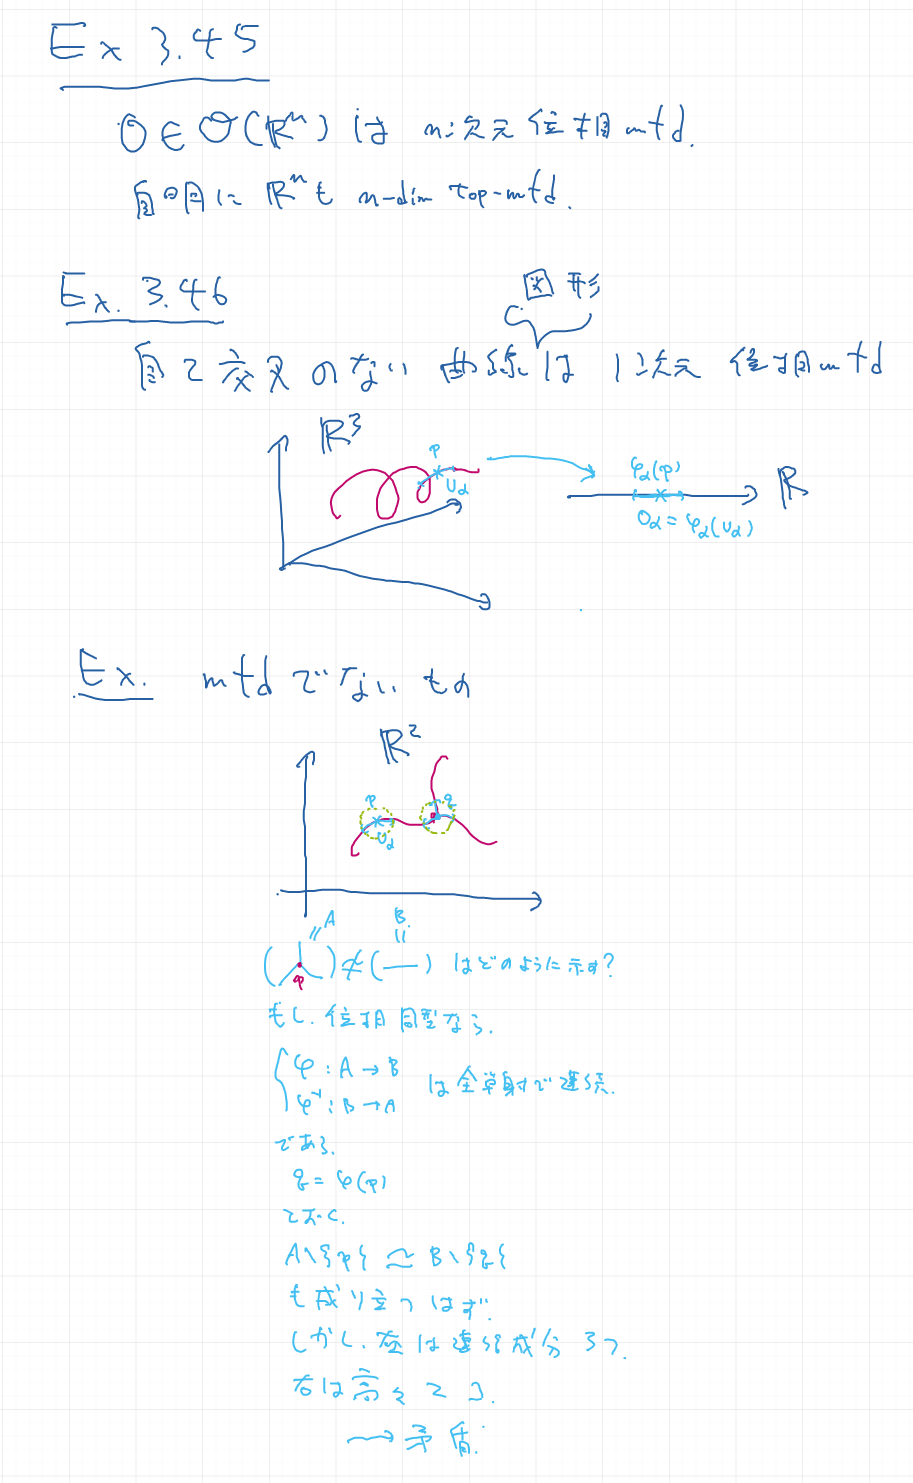 Ex 3.45
O ∈ 𝒪(ℝⁿ) は n次元位相mfd.
同様に ℝⁿも n-dim top-mfd.
Ex. 3.46
図形
自己交叉のない曲線は 1次元 位相mfd
ℝ³
p
U_α
φ_α(p)
ℝ
O_α = φ_α(U_α)
Ex. mfdでないもの
ℝ²
p
q
U_α
A
B
p
≄ はどのように示す?
もし、位相同型なら、
φ : A → B
φ⁻¹ : B → A
は全単射で連続.
である.
q = φ(p)
とおく.
A \ {p} ≃ B \ {q}
も成り立つはず.
しかし、左は連結成分3つ.
右は高々2つ.
→ 矛盾.